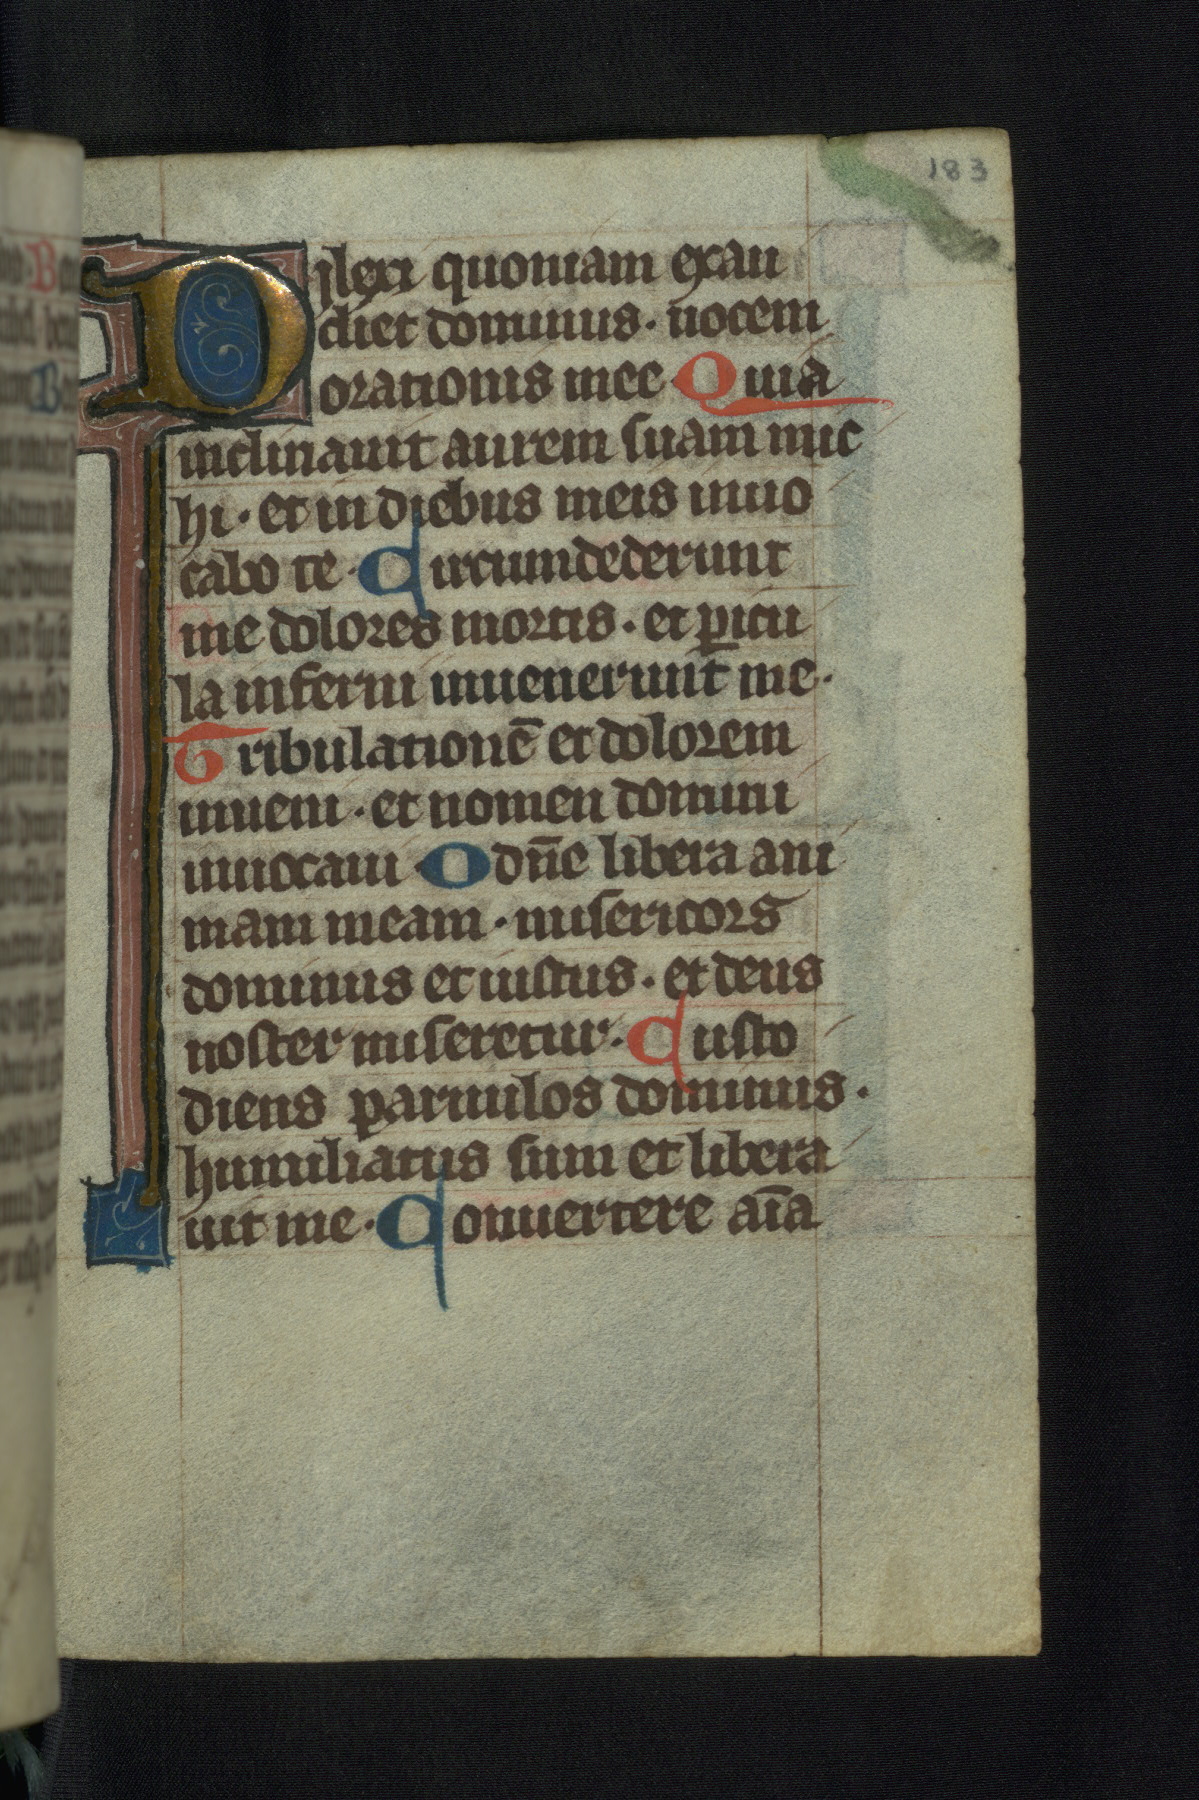 183
Dilexi quoniam exau
diet dominus· uocem
orationis mee Quia
inclinauit aurem suam mic
hi· et in diebus meis inuo
cabo te· Circumdederunt
me dolores mortis· et ꝑicu
la inferni inuenerunt me·
Tribulationē et dolorem
inueni· et nomen domini
inuocaui O dn̄e libera ani
mam meam· misericors
dominus et iustus· et deus
noster miseretur· Custo
diens paruulos dominus·
humiliatus sum et libera
uit me· Conuertere aīa